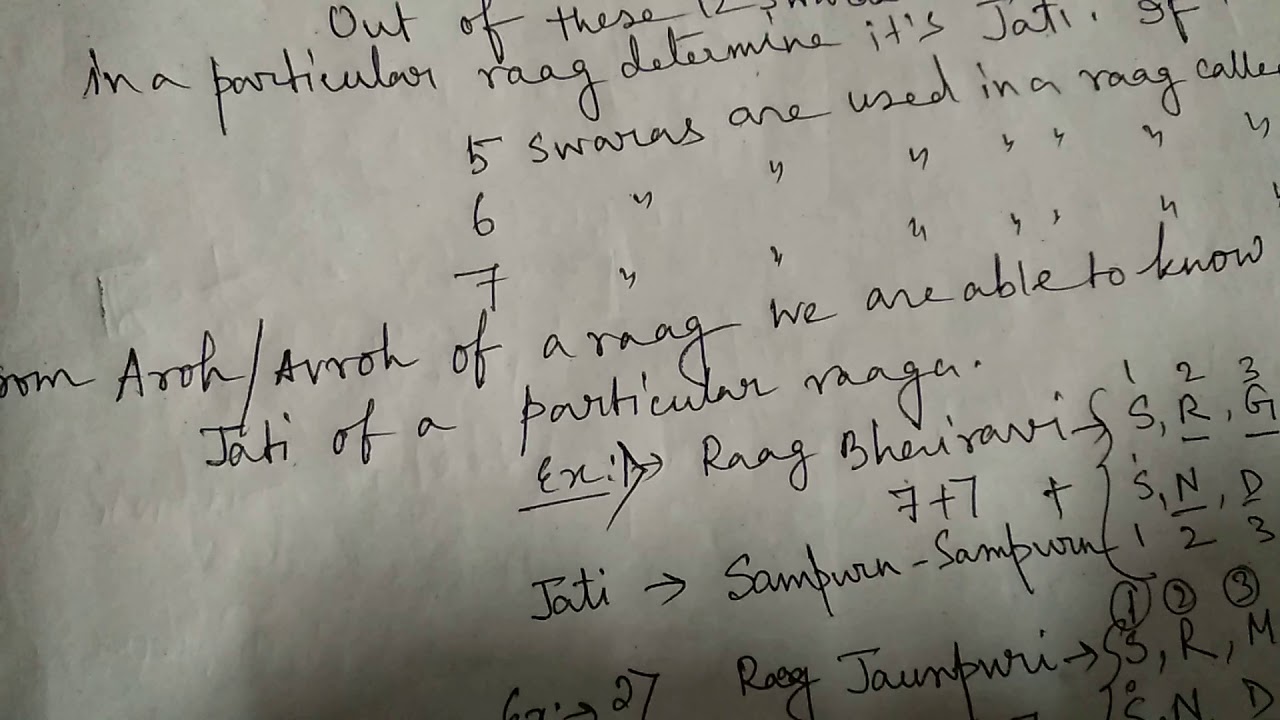 Out of these 12
in a particular raag determine it's Jati. If
5 swaras are used in a raag called
6 " " " " " " "
7 " " " " " "
rom Aroh/Avroh of a raag we are able to know
Jati of a particular raaga.
1 2 3
Ex:1)→ Raag Bhairavi→{ S, R, G
7+7 + { Ṡ, N, D
Jati → Sampurn-Sampurn 1 2 3
① ② ③
Ex:→ 2) Raag Jaunpuri→{ S, R, M
Ṡ, N D